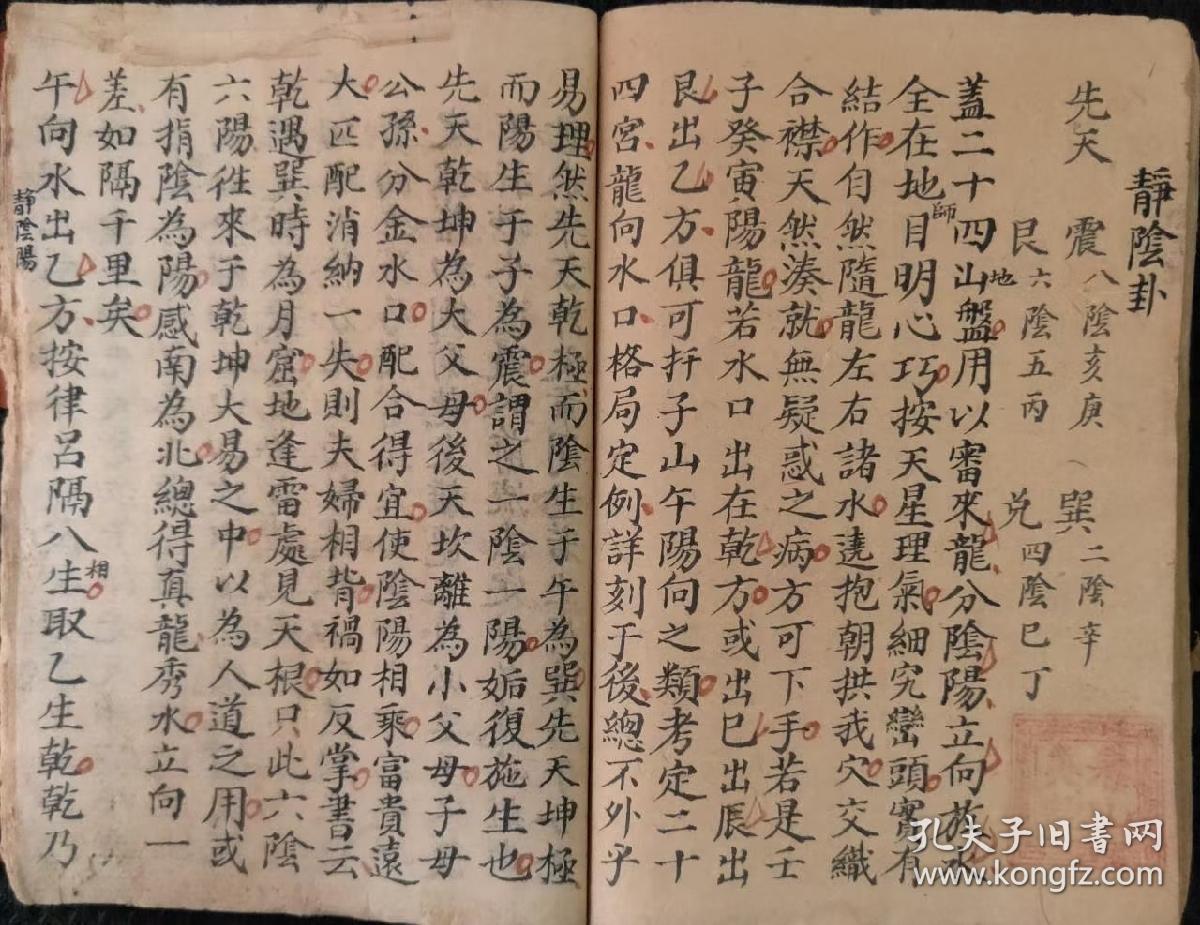 靜陰卦
先天 震八陰亥庚 巽二陰辛
艮六陰五丙 兌四陰巳丁
蓋二十四山地盤用以審來龍分陰陽立向放水
全在地師目明心巧按天星理氣細究巒頭實有
結作自然隨龍左右諸水遶抱朝拱我穴交織
合襟天然湊就無疑惑之病方可下手若是壬
子癸寅陽龍若水口出在乾方或出巳出辰出
艮出乙方俱可扦子山午陽向之類考定二十
四宮龍向水口格局定例詳刻于後總不外乎
易理然先天乾極而陰生于午為巽先天坤極
而陽生于子為震謂之一陰一陽姤復施生也
先天乾坤為大父母後天坎離為小父母子母
公孫分金水口配合得宜使陰陽相乘富貴遠
大匹配消納一失則夫婦相背禍如反掌書云
乾遇巽時為月窟地逢雷處見天根只此六陰
六陽徃來于乾坤大易之中以為人道之用或
有指陰為陽感南為北總得真龍秀水立向一
差如隔千里矣
午向水出乙方按律呂隔八相生取乙生乾乾乃
靜陰陽
孔夫子旧書网
www.kongfz.com